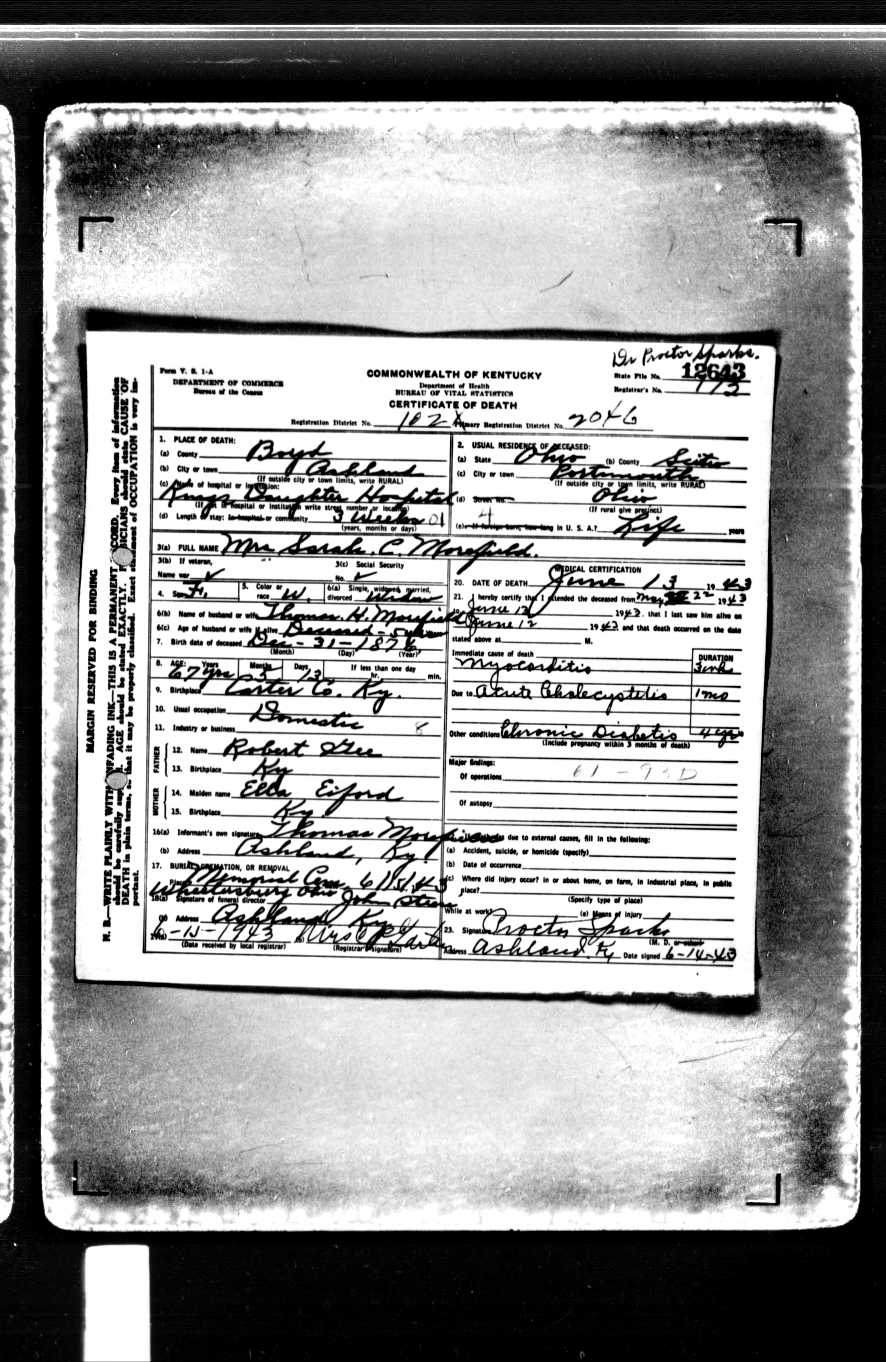 Dr Proctor Sparks.
Form V. S. 1-A
DEPARTMENT OF COMMERCE
Bureau of the Census
COMMONWEALTH OF KENTUCKY
Department of Health
BUREAU OF VITAL STATISTICS
CERTIFICATE OF DEATH
State File No. 12643
Registrar's No.
Registration District No. 102
Primary Registration District No. 2046
MARGIN RESERVED FOR BINDING
N. B.—WRITE PLAINLY WITH UNFADING INK—THIS IS A PERMANENT RECORD. Every item of information
should be carefully supplied. AGE should be stated EXACTLY. PHYSICIANS should state CAUSE OF
DEATH in plain terms, so that it may be properly classified. Exact statement of OCCUPATION is very im-
portant.
1. PLACE OF DEATH:
(a) County Boyd
(b) City or town Ashland
(If outside city or town limits, write RURAL)
(c) Name of hospital or institution:
Kings Daughter Hospital
(If not in hospital or institution write street number or location)
(d) Length of stay: In hospital or community 3 Weeks 01
(years, months or days)
2. USUAL RESIDENCE OF DECEASED:
(a) State Ohio (b) County Scitio
(c) City or town Portsmouth
(If outside city or town limits, write RURAL)
(d) Street No. Ohio
(If rural give precinct)
4
(e) If foreign born, how long in U. S. A.? Life years
3(a) FULL NAME Mrs Sarah. C. Morefield.
3(b) If veteran,
Name war ✓
3(c) Social Security
No. ✓
4. Sex Fe,
5. Color or race W.
6(a) Single, widowed, married, divorced Widow
6(b) Name of husband or wife Thomas. H. Morefield
6(c) Age of husband or wife if alive Deceased
7. Birth date of deceased Dec - 31 - 1876
(Month) (Day) (Year)
8. AGE: Years 67 yrs Months 5 Days 13 If less than one day hr. min.
9. Birthplace Carter Co. Ky.
10. Usual occupation Domestic
11. Industry or business 8
FATHER
12. Name Robert Gee
13. Birthplace Ky
MOTHER
14. Maiden name Ella Eiford
15. Birthplace Ky
16(a) Informant's own signature Thomas Morefield
(b) Address Ashland, Ky.
17. BURIAL, CREMATION, OR REMOVAL
Place Memorial Cem. 6/15/43
Wheelersburg Ohio
18(a) Signature of funeral director John Steen
(b) Address Ashland Ky
19(a) 6-15-1943
(Date received by local registrar)
(b) Mrs
(Registrar's signature)
MEDICAL CERTIFICATION
20. DATE OF DEATH June 13 1943
21. I hereby certify that I attended the deceased from May 22 1943
to June 12 1943, that I last saw him alive on
June 12 1943 and that death occurred on the date
stated above at M.
Immediate cause of death
DURATION
Myocarditis 3 wk
Due to Acute Cholecystitis 1 mo
Other conditions Chronic Diabetis 4 yr
(Include pregnancy within 3 months of death)
Major findings:
Of operations 61 - 93D
Of autopsy
22. If death was due to external causes, fill in the following:
(a) Accident, suicide, or homicide (specify)
(b) Date of occurrence
(c) Where did injury occur? in or about home, on farm, in industrial place, in public
place?
(Specify type of place)
While at work? (e) Means of injury
23. Signature Proctor Sparks
(M. D. or other)
Address Ashland Ky Date signed 6-14-43